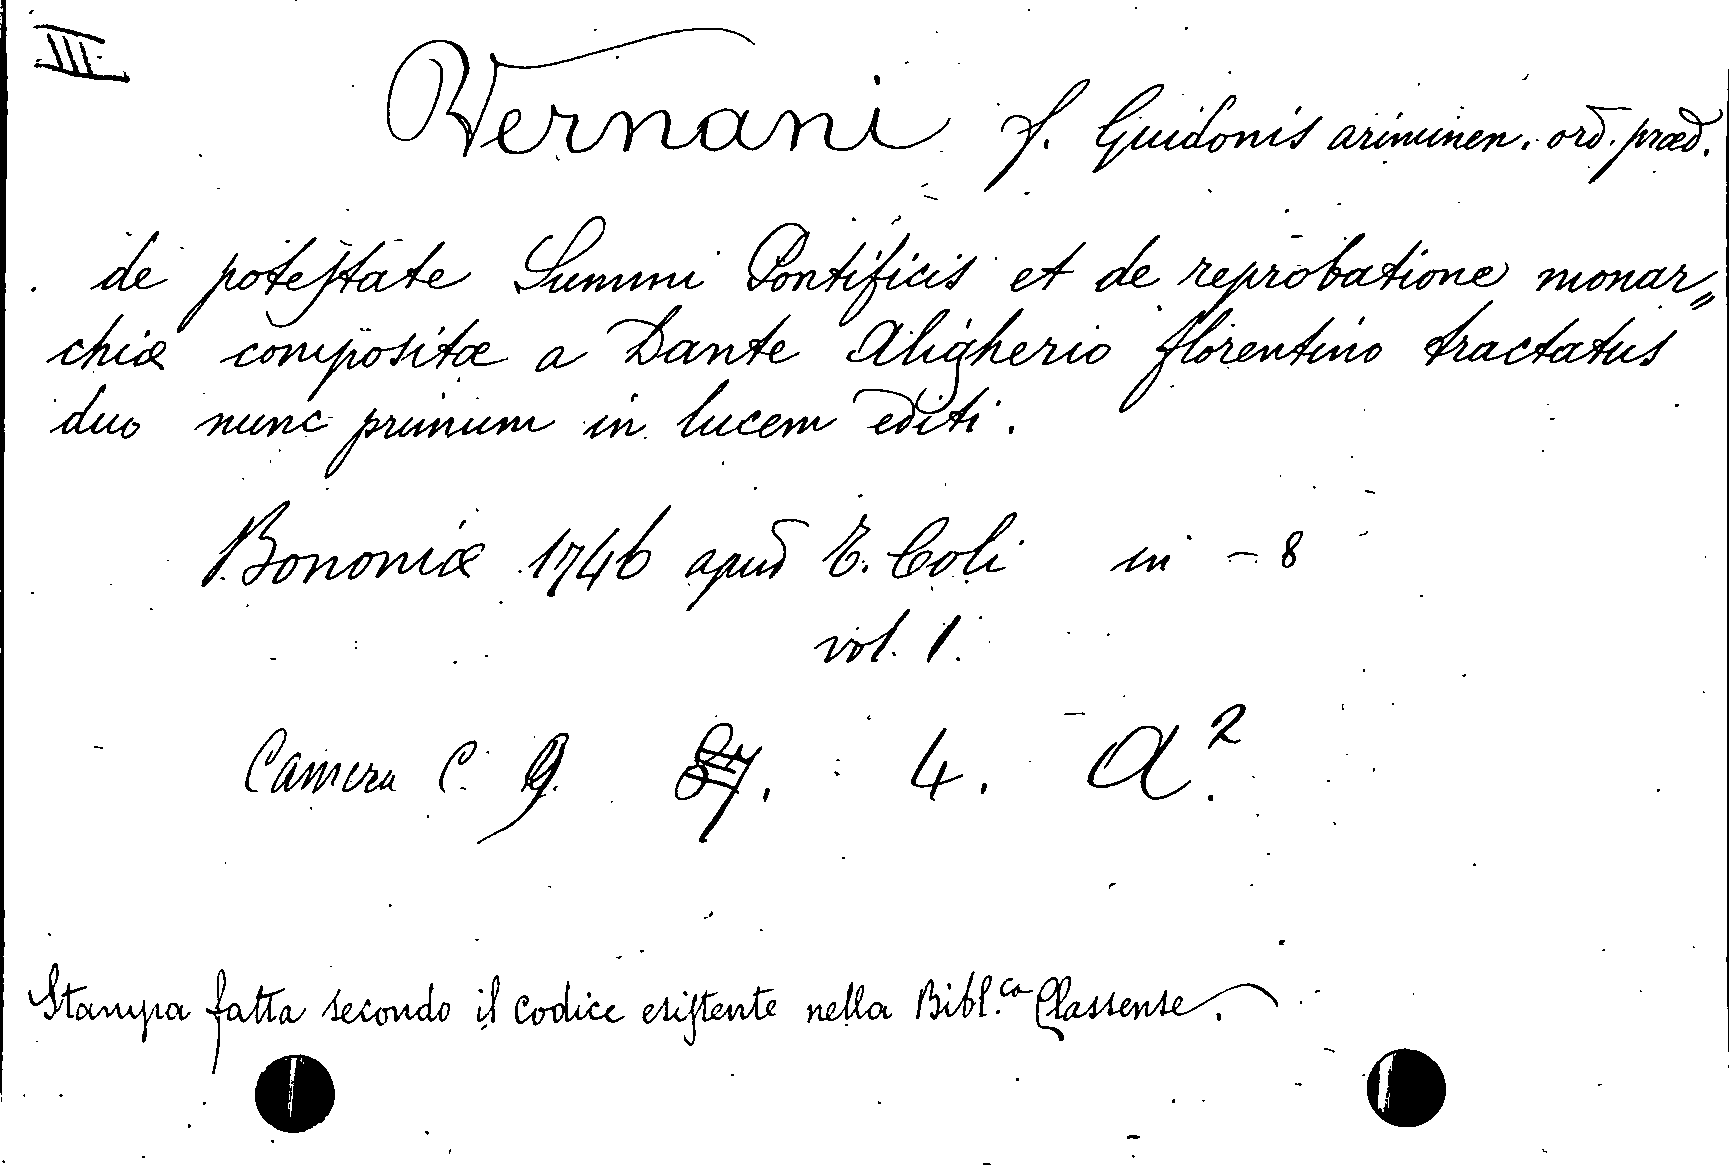 III.
Vernani f. Guidonis ariminen. ord. præd.
de potestate Summi Pontificis et de reprobatione monar„
chiæ compositæ a Dante Aligherio florentino tractatus
duo nunc primum in lucem editi.
Bononiæ 1746 apud T. Coli in - 8
vol. 1.
Camera C. 9. 87. 4. A².
Stampa fatta secondo il codice esistente nella Bibl.ca Classense.